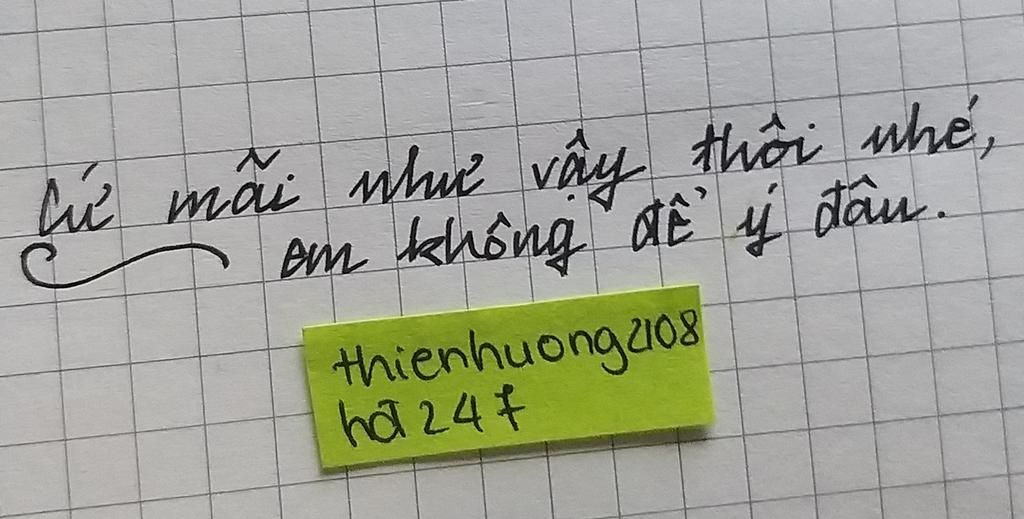 Cứ mãi như vậy thôi nhé,
em không để ý đâu.
thienhuong2108
hđ 247